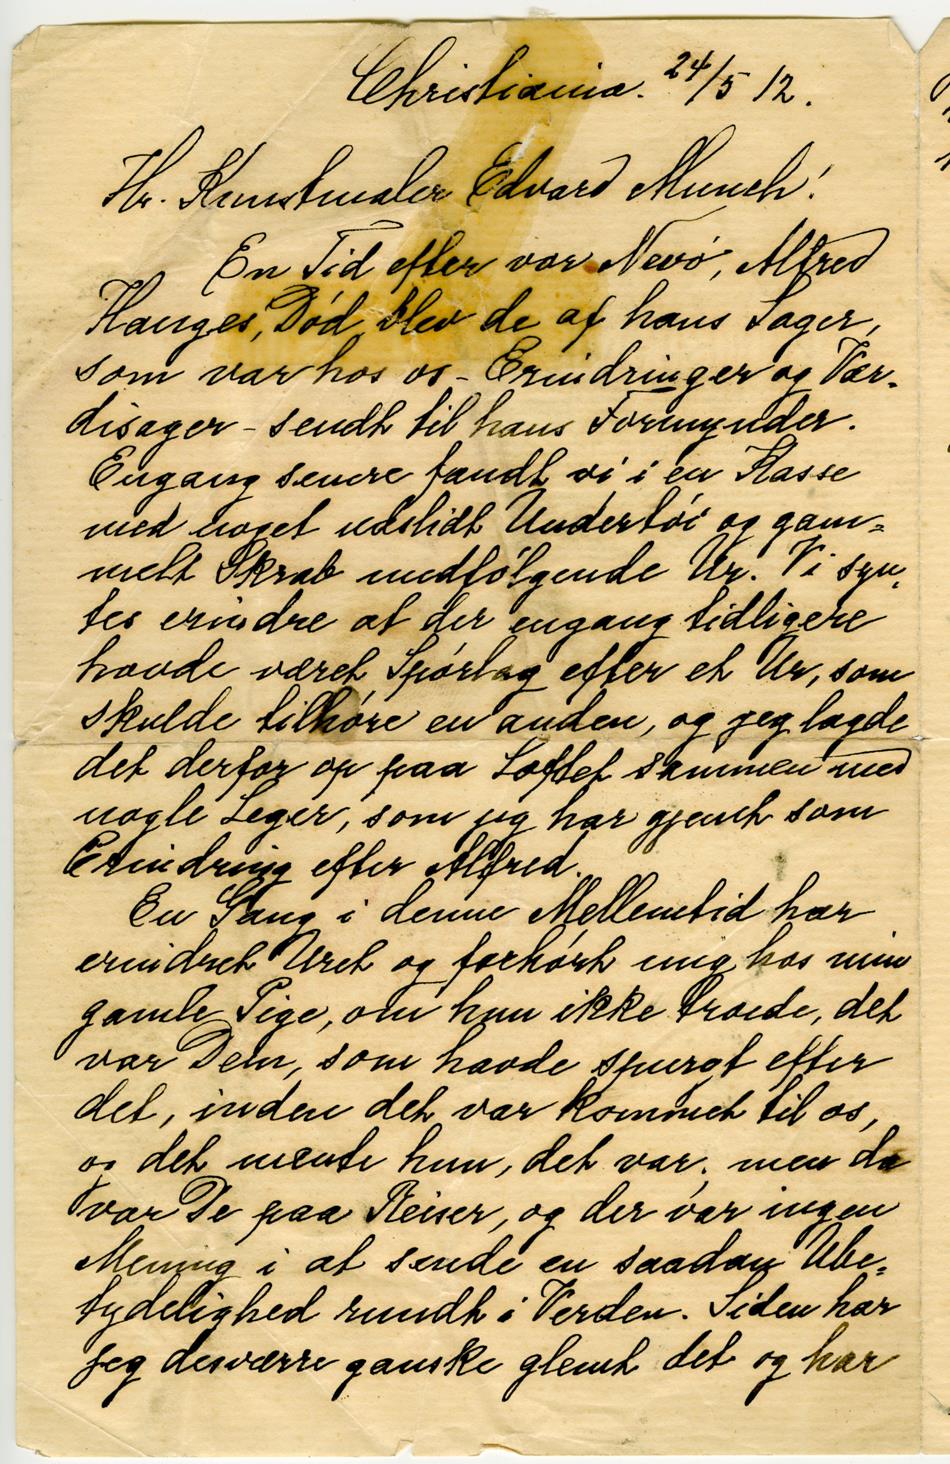 Christiania. 24/5 12.
Hr. Kunstmaler Edvard Munch!
En Tid efter vor Nevø, Alfred
Hauges, Død, blev de af hans Sager,
som var hos os – Erindringer og Vær-
disager – sendt til hans Formynder.
Engang senere fandt vi i en Kasse
med noget udslidt Undertøi og gam=
melt Skrab medfølgende Ur. Vi syn-
tes erindre at der engang tidligere
havde været Spørlag efter et Ur, som
skulde tilhøre en anden, og jeg lagde
det derfor op paa Loftet sammen med
nogle Leger, som jeg har gjemt som
Erindring efter Alfred.
En Gang i denne Mellemtid har
erindret Uret og forhørt mig hos min
gamle Pige, om hun ikke troede, det
var Dem, som havde spurgt efter
det, inden det var kommet til os,
og det mente hun, det var, men da
var De paa Reiser, og der var ingen
Mening i at sende en saadan Ube=
tydelighed rundt i Verden. Siden har
jeg desværre ganske glemt det og har